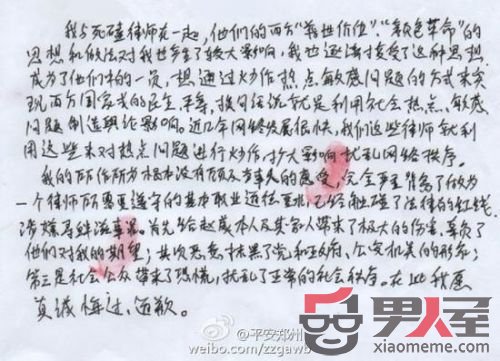 我与死磕律师在一起,他们的西方"普世价值"、"颜色革命"的
思想和做法对我也产生了较大影响,我也逐渐接受了这种思想
成为了他们中的一员,想通过炒作热点敏感问题的方式来实
现西方国家式的民主、平等,换句话说就是利用社会热点、敏感
问题制造舆论影响。近几年网络发展很快,我们这些律师就利
用这些来对热点问题进行炒作,扩大影响扰乱网络秩序。
我的所作所为根本没有顾及当事人的感受,完全严重背离了做为
一个律师所需要遵守的基本职业道德要求,已经触碰了法律的红线,
涉嫌寻衅滋事罪。首先给赵威本人及其家人带来了极大的伤害,辜负了
他们对我的期望;其次恶意抹黑了党和政府、公安机关的形象;
第三是社会公众带来了恐慌,扰乱了正常的社会秩序。在此我愿
真诚悔过、道歉。
@平安郑州
weibo.com/zzgawb
男人窝
xiaomeme.com